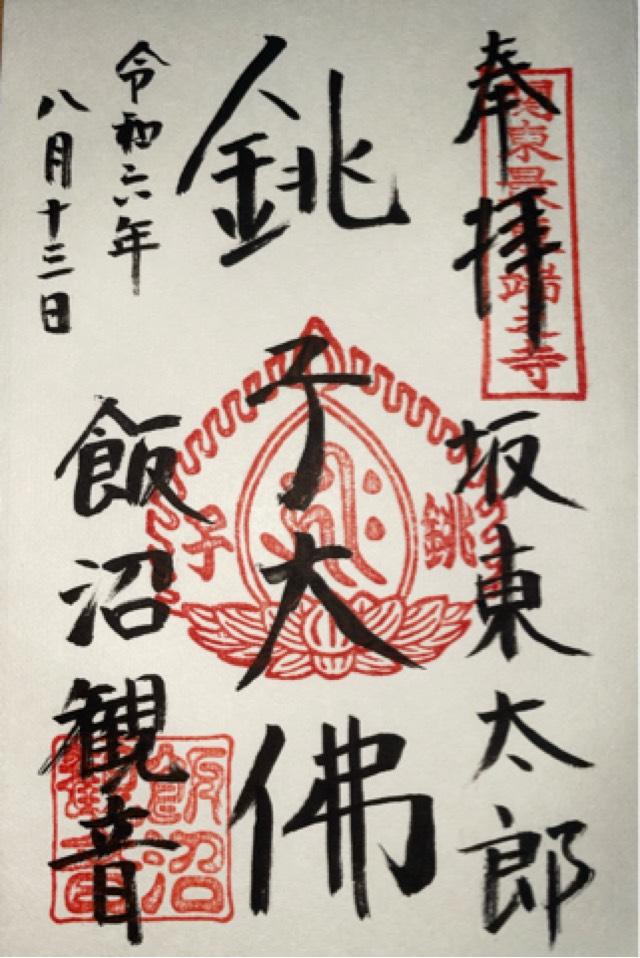 奉拝
坂東太郎
銚子大佛
令和六年
八月十三日
飯沼観音
関東最東端之寺
銚子
飯沼
観音